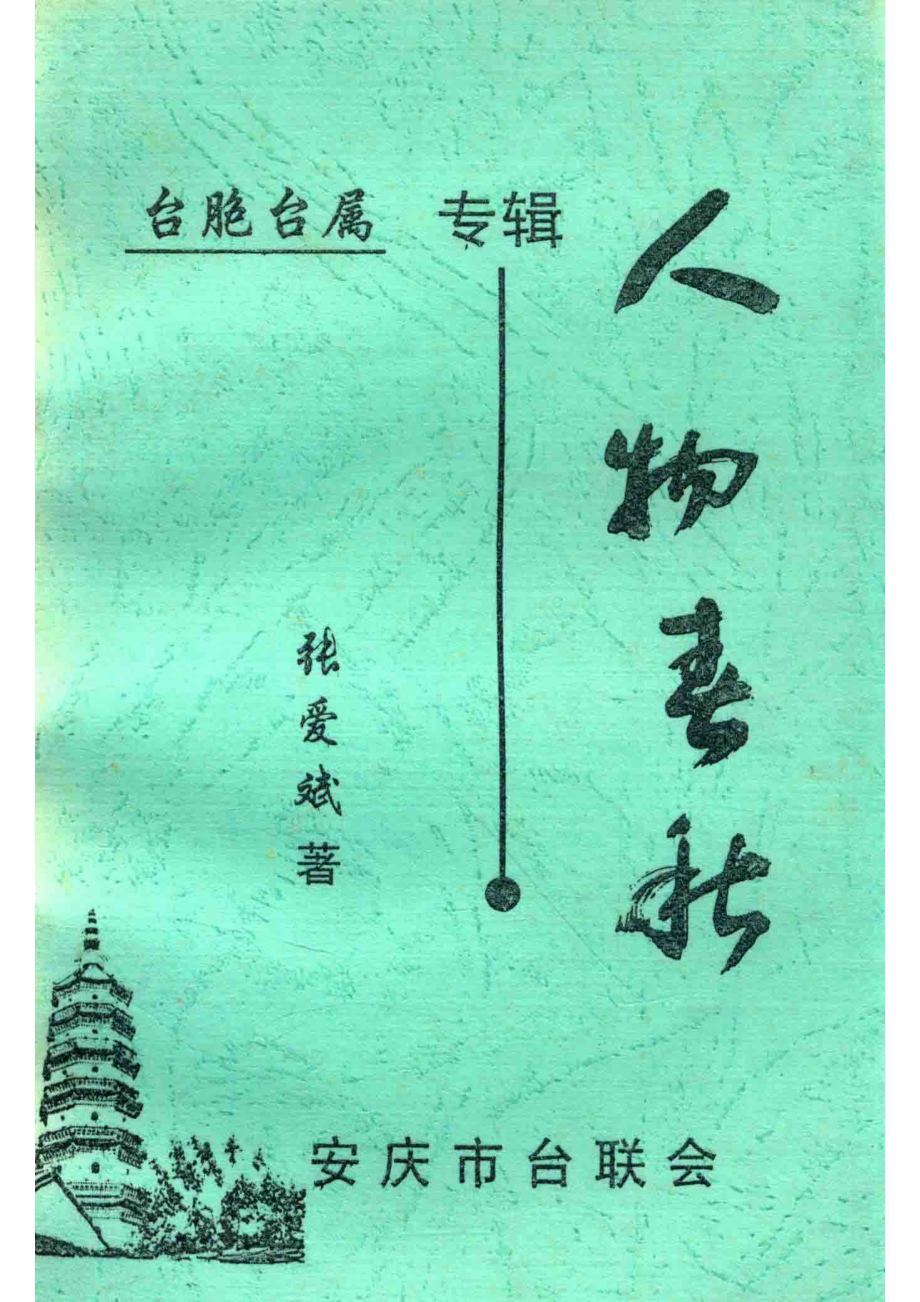 人物春秋
台胞台属 专辑
张爱斌 著
安庆市台联会